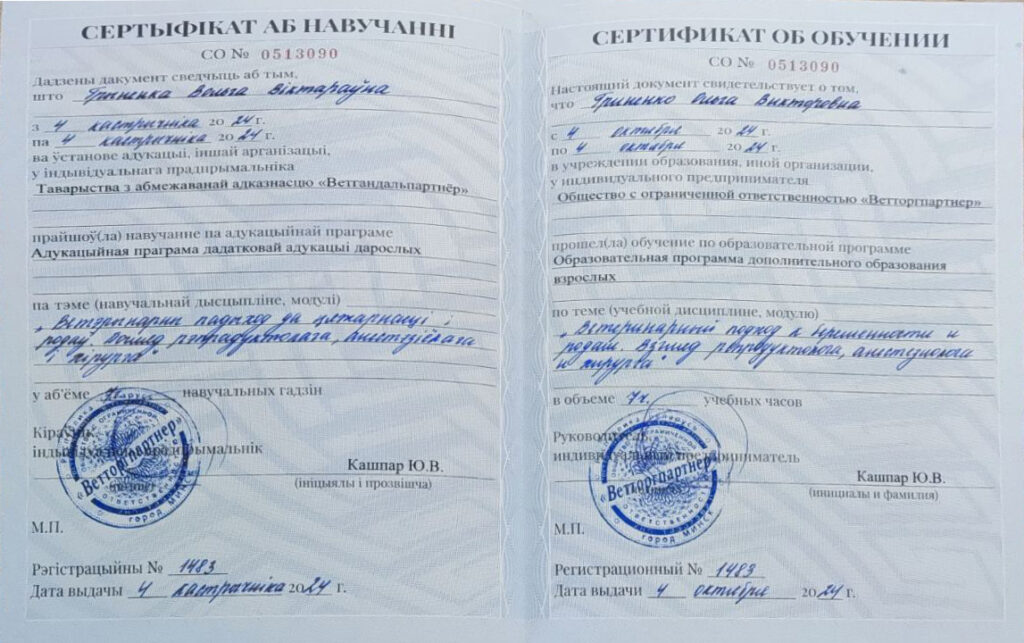 СЕРТЫФІКАТ АБ НАВУЧАННІ
СО № 0513090
Дадзены дакумент сведчыць аб тым,
што Грыненка Вольга Віктараўна
з 4 кастрычніка 20 24 г.
па 4 кастрычніка 20 24 г.
ва ўстанове адукацыі, іншай арганізацыі,
у індывідуальнага прадпрымальніка
Таварыства з абмежаванай адказнасцю «Ветгандальпартнёр»
прайшоў(ла) навучанне па адукацыйнай праграме
Адукацыйная праграма дадатковай адукацыі дарослых
па тэме (навучальнай дысцыпліне, модулі)
"Ветэрынарны падыход да цяжарнасці і
родаў. Погляд рэпрадуктолага, анестэзіёлага
і хірурга"
у аб'ёме 7г. навучальных гадзін
Кіраўнік
індывідуальны прадпрымальнік
Кашпар Ю.В.
(ініцыялы і прозвішча)
М.П.
Рэгістрацыйны № 1483
Дата выдачы 4 кастрычніка 20 24 г.
Республика Беларусь
с ограниченной
«Ветторгпартнер»
ответственностью
город Минск
СЕРТИФИКАТ ОБ ОБУЧЕНИИ
СО № 0513090
Настоящий документ свидетельствует о том,
что Гриненко Ольга Викторовна
с 4 октября 20 24 г.
по 4 октября 20 24 г.
в учреждении образования, иной организации,
у индивидуального предпринимателя
Общество с ограниченной ответственностью «Ветторгпартнер»
прошел(ла) обучение по образовательной программе
Образовательная программа дополнительного образования
взрослых
по теме (учебной дисциплине, модулю)
"Ветеринарный подход к беременности и
родам. Взгляд репродуктолога, анестезиолога
и хирурга"
в объеме 7ч. учебных часов
Руководитель
индивидуальный предприниматель
Кашпар Ю.В.
(инициалы и фамилия)
М.П.
Регистрационный № 1483
Дата выдачи 4 октября 20 24 г.
Республика Беларусь
с ограниченной
«Ветторгпартнер»
ответственностью
город Минск